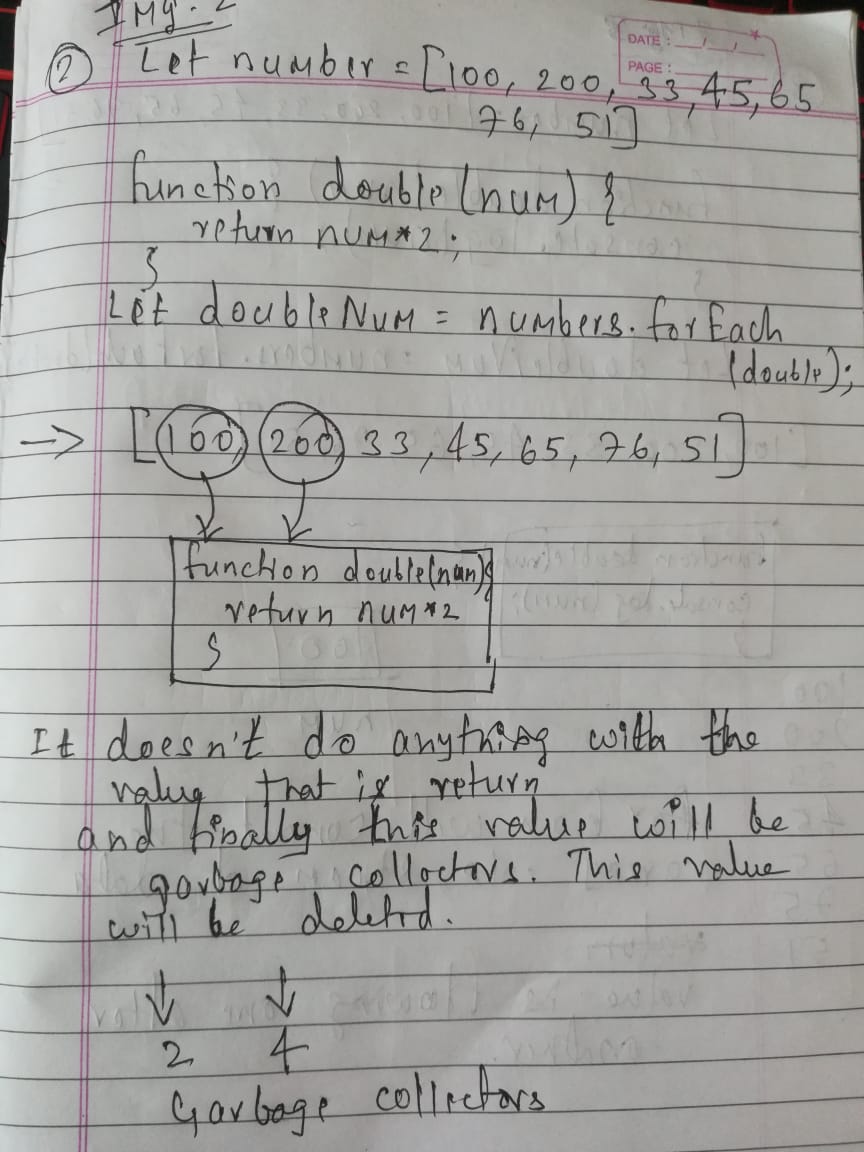 Img. 2
DATE : __/__/__
PAGE :
② Let number = [100, 200, 33, 45, 65
76, 51]
function double (num) {
return num*2;
}
Let doubleNum = numbers. forEach
(double);
→ [100, 200, 33, 45, 65, 76, 51]
function double(num){
return num*2
}
It doesn't do anything with the
value that is return
and finally this value will be
garbage collectors. This value
will be deleted.
↓ ↓
2 4
Garbage collectors